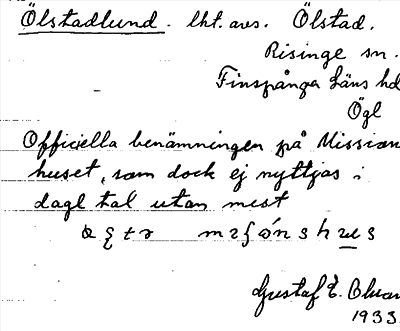 Ölstadlund. lht. avs. Ölstad.
Risinge sn.
Finspånga läns hd
Ögl
Officiella benämningen på Mission
huset, som dock ej nyttjas i
dagl tal utan mest
Gustaf E.
1933